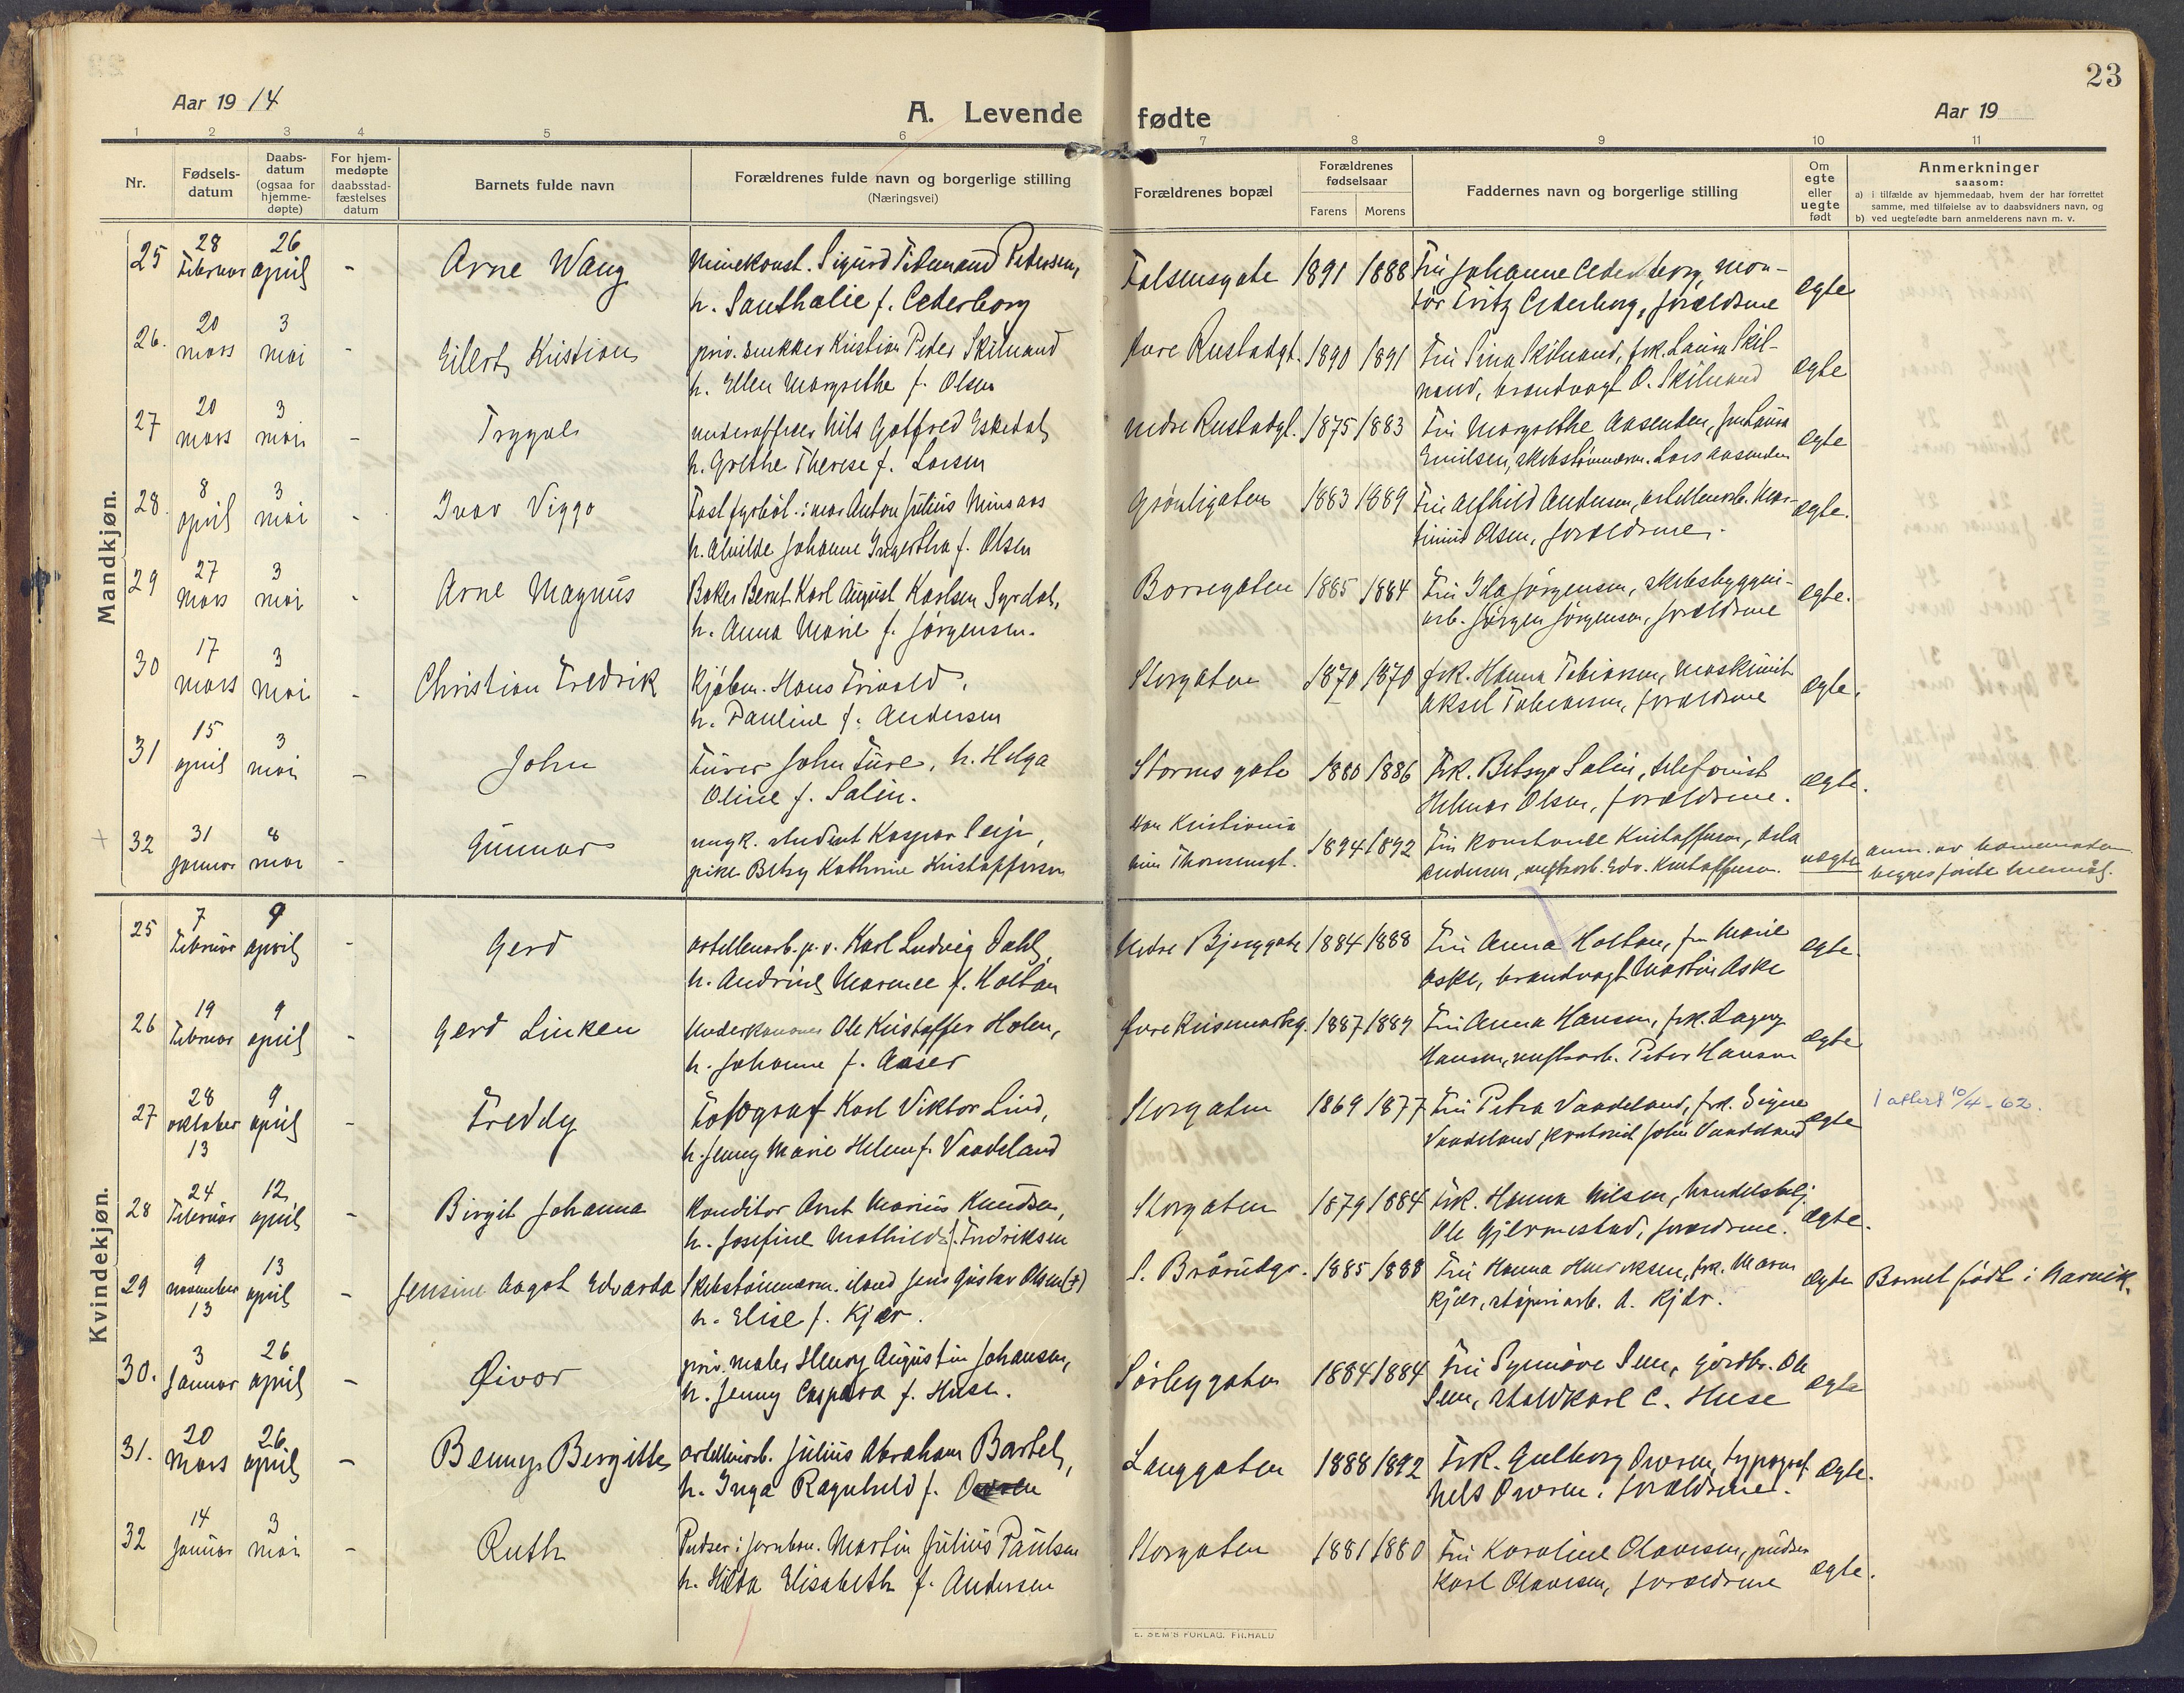 23
Aar 1914
A. Levende fødte
Aar 19
1 2 3 4 5 6 7 8 9 10 11
Nr.
Fødsels-
datum
Daabs-
datum
(ogsaa for
hjemme-
døpte)
For hjem-
medøpte
daabsstad-
fæstelses
datum
Barnets fulde navn
Forældrenes fulde navn og borgerlige stilling
(Næringsvei)
Forældrenes bopæl
Forældrenes
fødselsaar
Farens Morens
Faddernes navn og borgerlige stilling
Om
egte
eller
uegte
født
Anmerkninger
saasom:
a) i tilfælde av hjemmedaab, hvem der har forrettet
samme, med tilføielse av to daabsvidners navn, og
b) ved uegtefødte barn anmelderens navn m. v.
Mandkjøn.
25 28 Februar 26 april - Arne Wang
Minekonst. Sigurd Petersen,
h. Santhalie f. Cederborg
Falsensgate 1891 1888
Fru Johanne Cederborg, mon-
tør Fritz Cederborg, forældrene
egte
26. 20 mars 3 mai - Eilert Kristian
priv. snekker Kristian Peter Skilnand
h. Ellen Margrethe f. Olsen
øvre Rustadgt. 1890 1891
Fru Sina Skilnand, frk. Laura Skil-
nand, brandvagt O. Skilnand
egte
27 20 mars 3 mai - Trygve
underofficer Nils Gotfred Eskedal,
h. Grethe Therese f. Larsen
nedre Rustadgt. 1875 1883
Fru Margrethe Aasenden, fru Laura
Emilsen, skibstømmerm. Lars Aasenden
egte
28. 8 april 3 mai - Ivar Viggo
Fast fyrbøt. i mar Anton Julius
h. Alvilde Johanne f. Olsen
Grønligaten 1883 1889
Fru Alfhild Andersen, artillerarb.
Olsen, forældrene.
egte.
29 27 Mars 3 mai - Arne Magnus
Baker Bernt Karl August Karlsen Syrdal,
h. Anna Marie f. Jørgensen.
Borregaten 1885 1884
Fru Ida Jørgensen, skibsbyggeri-
arb. Jørgen Jørgensen, forældrene
egte.
30 17 mars 3 mai - Christian Fredrik
Kjøbm. Hans Trivold,
h. Pauline f. Andersen
Storgaten 1870 1870
frk. Hanna Tobiassen, maskinist
Aksel Tobiassen, forældrene
egte.
31 15 april 3 mai - John
John Ture, h. Helga
Oline f. Salin.
Storms gate 1880 1886
Frk. Betsy Salin, telefonist
Helmar Olsen, forældrene.
egte.
32 31 januar 8 mai - Gunnar
ungk. student Kaspar
pike Betsy Kathrine Kristoffersen
han Kristiania
hun Thomsensgt.
1894 1892
Fru Konstance Kristoffersen,
Andersen, verftsarb. Edv. Kristoffersen.
uegte
anm. av barnemoren
begges første
Kvindekjøn.
25 7 Februar 9 april - Gerd
artillerarb. p. v. Karl Ludvig Dahl,
h. Andrine f. Holtan
Nedre Bjerggate 1884 1888
Fru Anna Holtan, fru Marie
Aske, brandvagt Martin Aske
egte.
26 19 Februar 9 april - Gerd Linken
Underkanoner Ole Kristoffer Holen,
h. Johanne f. Aaser
1887 1889
Fru Anna Hansen, frk. Dagny
Hansen, verftsarb. Peter Hansen
egte
27 28 oktober 13 9 april - Freddy
Fotograf Karl Viktor Lind,
h. Jenny Marie Helene f. Vaadeland
Storgaten 1869 1877
Fru Petra Vaadeland, frk. Signe
Vaadeland, John Vaadeland
egte
1 attest 10/4-62.
28 24 Februar 12 april - Birgit Johanna
Konditor Arnt Marius Knudsen,
h. Josefine Mathilde f. Fredriksen
Storgaten 1879 1884
Frk. Hanna Nilsen, handelsbetj.
Ole Gjermestad, forældrene.
egte.
29 9 november 13 13 april - Jensine Aagot Edvarda
Skibstømmerm. iland Jens Gustav Olsen (†)
h. Elise f. Kjær.
S. Brårudgt. 1885 1888
Fru Hanna Henriksen, frk. Maren
Kjær, støperiarb. A. Kjær.
egte Barnet født i Narvik.
30. 3 Januar 26 april - Øivor
priv. maler Henry Augustin Johansen,
h. Jenny Caspara f. Huse.
Sørbygaten 1884 1884
Fru Synnøve Sem, gårdbr. Ole
Sem, staldkarl C. Huse
egte
31. 20 Mars 26 april - Benny Bergitte
artillerarb. Julius Abraham Bartel,
h. Inga Ragnhild f.
Langgaten 1888 1892
Frk. Gulborg Owren, typograf
Nels Owren, forældrene.
egte.
32 14 januar 3 mai - Ruth
Pudser i jernban. Martin Julius Paulsen
h. Hilda Elisabeth f. Andersen
Storgaten 1881 1880
Fru Karoline Olavesen, pudser
Karl Olavesen, forældrene
egte.
E. SEM'S FORLAG, FR.HALD